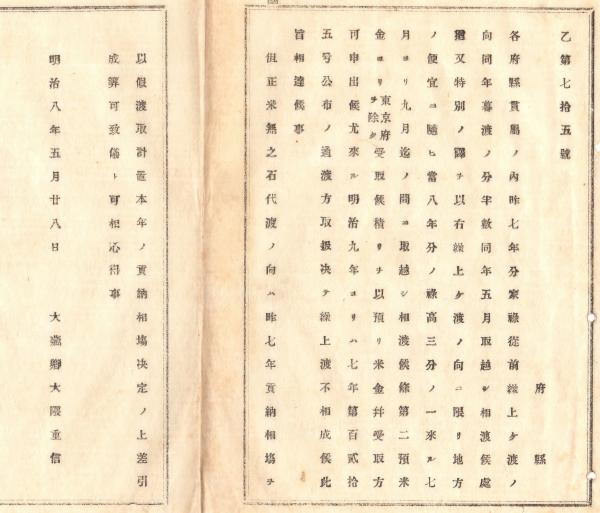 乙第七拾五號
府縣
各府縣貫屬ノ內昨七年分家祿從前繰上ケ渡ノ
向同年暮渡ノ分半數同年五月取越シ相渡候處
猶又特別ノ譯ヲ以右繰上ケ渡ノ向ニ限リ地方
ノ便宜ニ隨ヒ當八年分ノ祿高三分ノ一來ル七
月ヨリ九月迄ノ間ニ取越シ相渡候條第二預米
金ヨリ東京府ヲ除ク受取候積リヲ以預リ米金幷受取方
可申出候尤來ル明治九年ヨリハ七年第百貳拾
五号公布ノ通渡方取扱决テ繰上渡不相成候此
旨相達候事
但正米無之石代渡ノ向ハ昨七年貢納相塲ヲ
以假渡取計置本年ノ貢納相塲决定ノ上差引
成算可致儀ト可相心得事
明治八年五月廿八日 大藏卿大隈重信